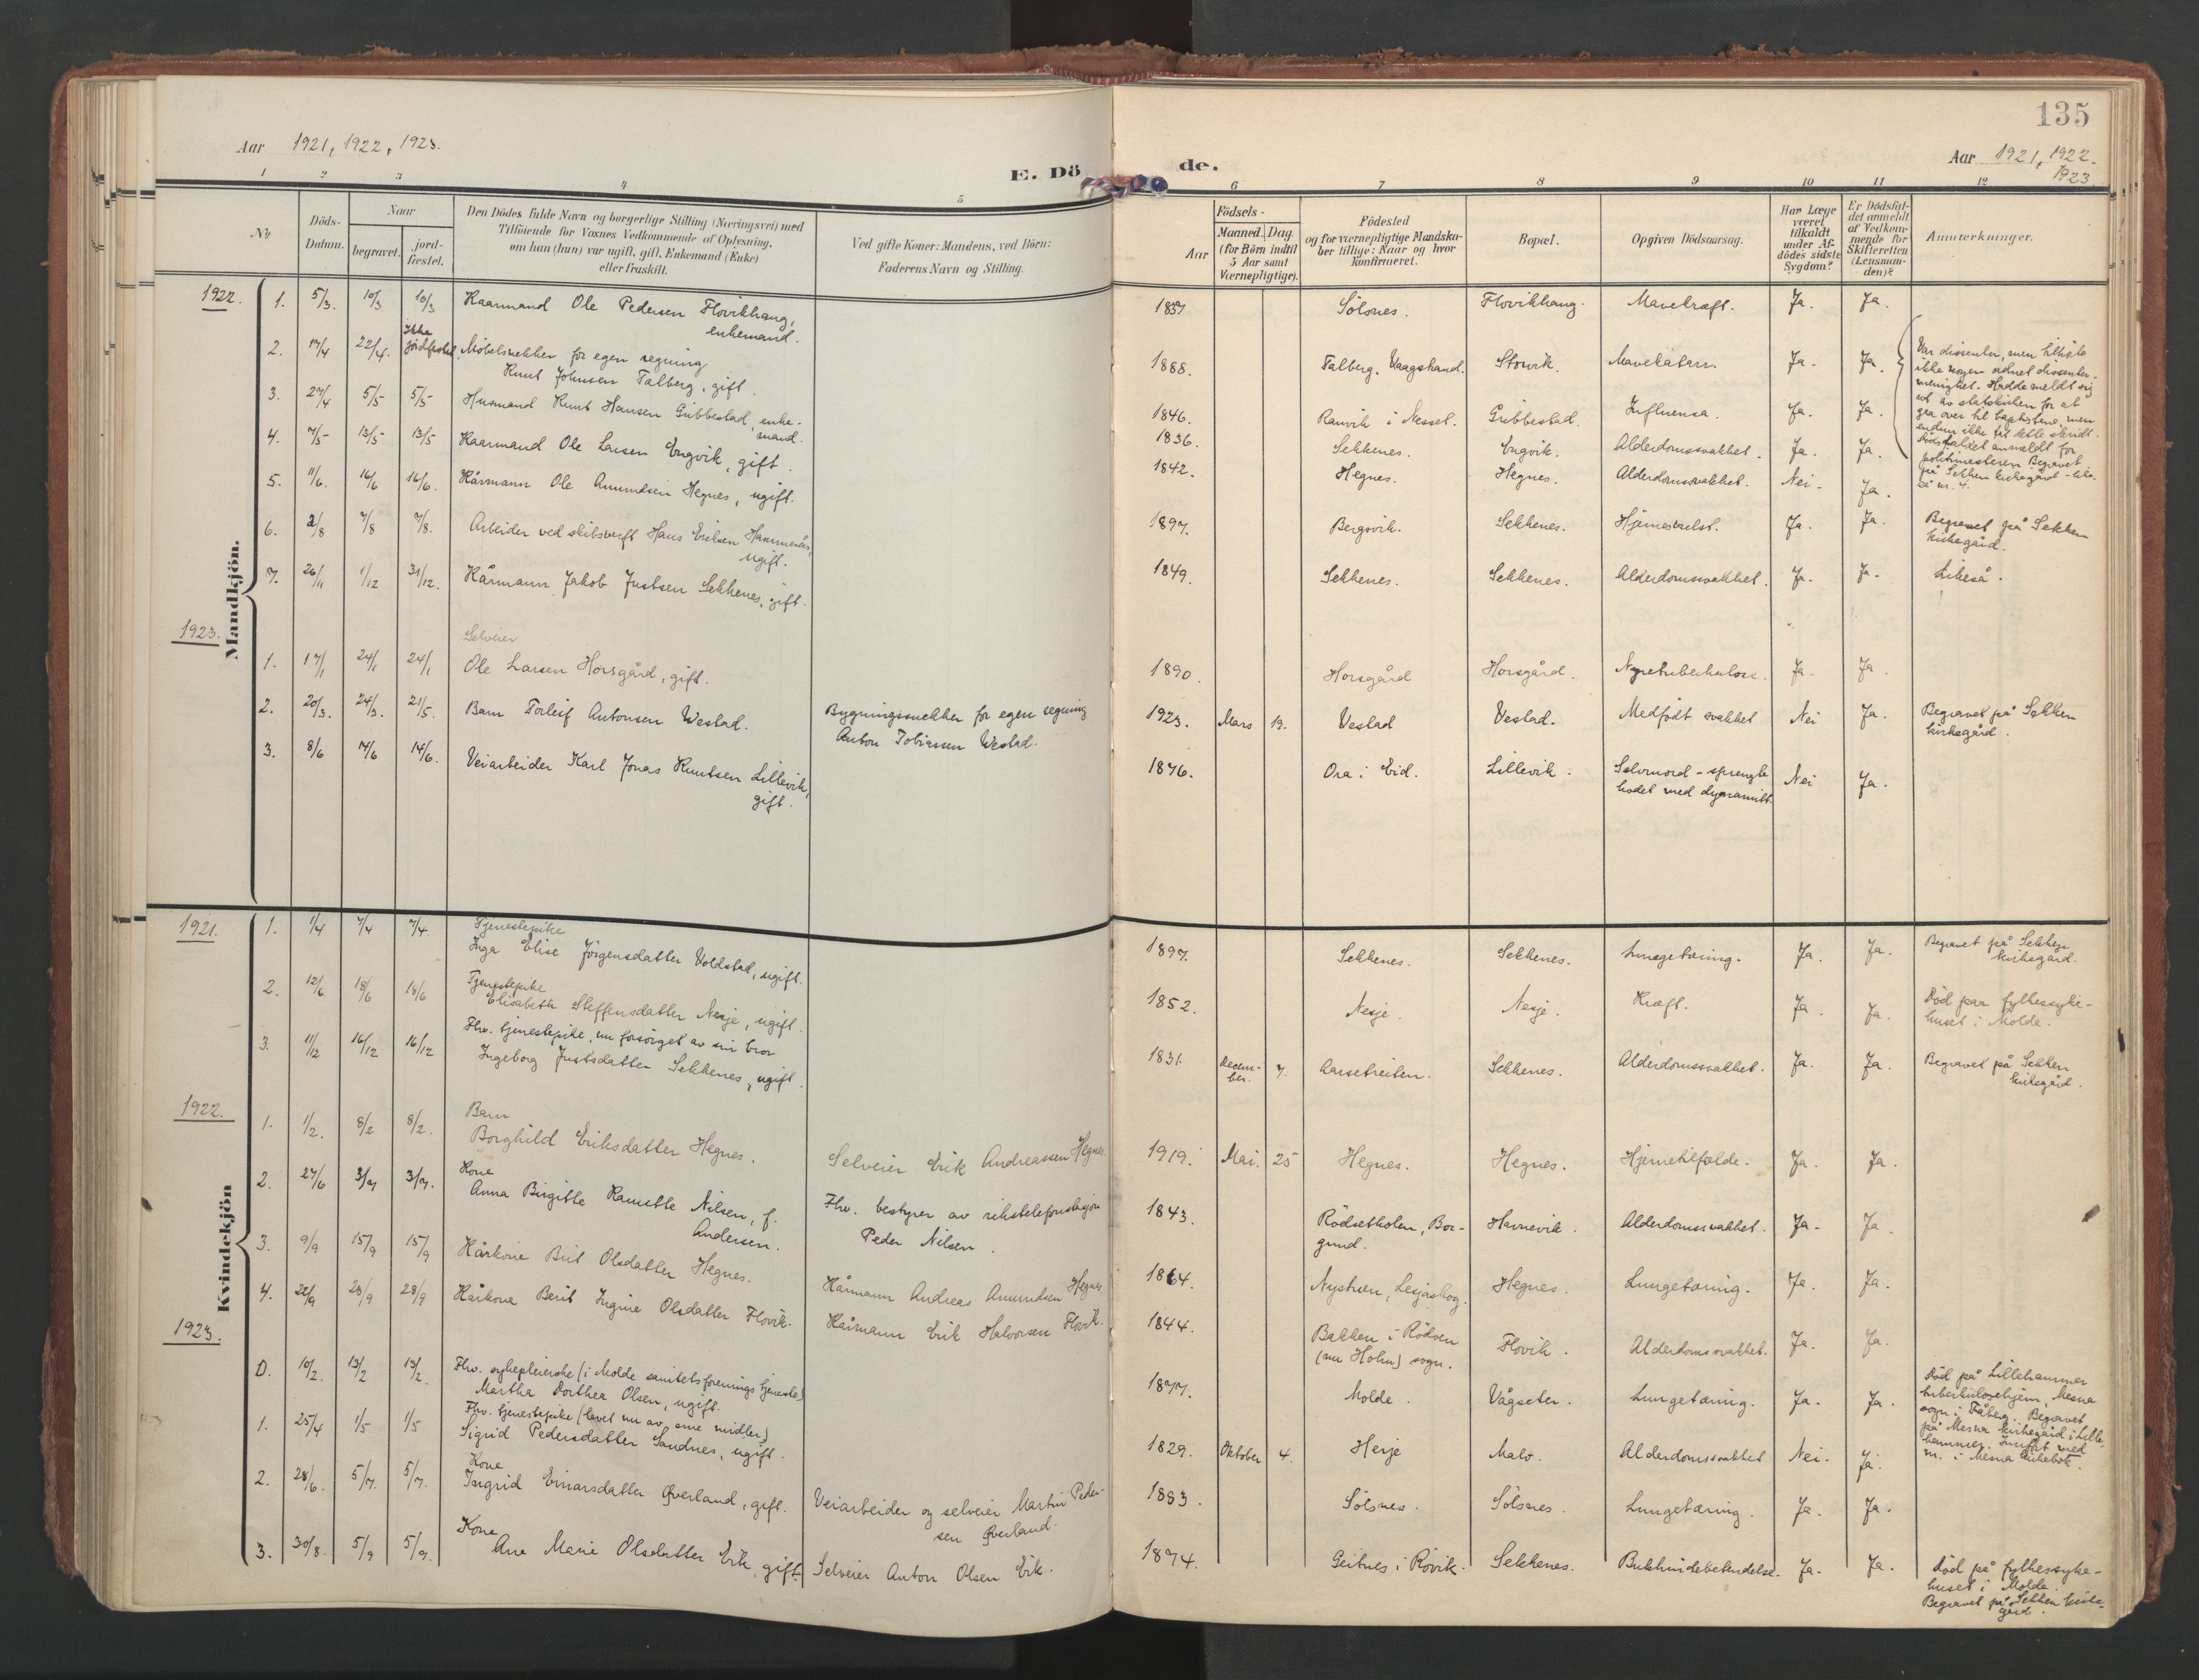 135
Aar 1921, 1922, 1923.
E. Dö de.
Aar 1921, 1922. 1923.
1 2 3 4 5 6 7 8 9 10 11 12
No
Döds-Datum.
Naar
begravet.
jord-fæstet.
Den Dödes fulde Navn og borgerlige Stilling (Næringsvei) med
Tilföiende for Voxnes Vedkommende af Oplysning,
om han (hun) var ugift, gift, Enkemand (Enke)
eller fraskilt.
Ved gifte Koner: Mandens, ved Börn:
Faderens Navn og Stilling.
Födsels-
Aar
Maaned. Dag.
(for Börn indtil
5 Aar samt
Værnepligtige).
Födested
og for værnepligtige Mandska-
ber tillige: Naar og hvor
konfirmeret.
Bopæl.
Opgiven Dödsaarsag.
Har Læge
været
tilkaldt
under Af-
dödes sidste
Sygdom?
Er Dödsfal-
det anmeldt
af Vedkom-
mende for
Skifteretten
(Lensman-
den)?
Anmærkninger.
Mandkjön.
1922.
1. 5/3. 10/3 10/3 Kaarmand Ole Pedersen Flovikhaug, enkemand. 1857 Sölsnes. Flovikhaug. Mavekræft. Ja. Ja.
2. 17/4 22/4. Ikke jordfæstet. Möbelsnekker for egen regning
Knut Johnsen Talberg, gift. 1888. Talberg, Vaagstrand. Storvik. Mavekatarr. Ja. Ja.
Var dissenter, men tilhörte
ikke nogen ordnet dissenter-
menighet. Hadde meldt sig
ut av statskirken for at
gaa over til baptistene, men
endnu ikke fåt dette skridt.
Dödsfaldet anmeldt for
politimesteren. Begravet
på Sekken kirkegård - like-
så nr. 4.
3. 27/4 5/5 5/5 Husmand Knut Hansen Gribbestad, enke-
mand. 1846. Ranvik i Nesset. Gribbestad. Influensa. Ja. Ja.
4. 7/5- 13/5- 13/5 Kaarmand Ole Larsen Engvik, gift. 1836. Sekkenes. Engvik. Alderdomssvakhet. Ja. Ja.
5. 11/6. 16/6 16/6. Kårmann Ole Amundsen Hegnes, ugift. 1842. Hegnes. Hegnes. Alderdomssvakhet. Nei- Ja.
6. 2/8 7/8 7/8. Arbeider ved skibsverft Hans Eriksen Hammerås,
ugift. 1897. Bergsvik. Sekkenes. Hjernesvulst. Ja. Ja. Begravet på Sekken
kirkegård.
7. 26/11 1/12 31/12. Kårmann Jakob Justsen Sekkenes, gift. 1849. Sekkenes. Sekkenes. Alderdomssvakhet. Ja. Ja. Likeså.
1923.
1. 17/1 24/1 24/1 Selveier
Ole Larsen Horsgård, gift. 1890. Horsgård Horsgård. Nyretuberkulose. Ja. Ja.
2. 20/3. 24/3. 21/5. Barn Torleif Antonsen Westad. Bygningssnekker for egen regning
Anton Tobiassen Westad. 1923. Mars 19. Vestad Vestad. Medfödt svakhet Nei Ja. Begravet på Sekken
kirkegård.
3. 8/6 14/6 14/6. Veiarbeider Karl Jonas Knutsen Lillevik,
gift. 1876. Ora i Eid. Lillevik. Selvmord - sprengte
hodet med dynamitt. Nei Ja.
Kvindekjön
1921.
1. 1/4 7/4 7/4. Tjenestepike
Inga Elise Jörgensdatter Voldstad, ugift. 1897. Sekkenes. Sekkenes. Lungetæring. Ja. Ja. Begravet på Sekken
kirkegård.
2. 12/6 18/6 18/6 Tjenestepike
Elisabeth Steffensdatter Nesje, ugift. 1852. Nesje. Nesje. Kræft. Ja. Ja. Död paa fylkessyke-
huset i Molde.
3. 11/12 16/12 16/12 Fhv. tjenestepike, nu forsörget av sin bror
Ingeborg Justsdatter Sekkenes, ugift. 1831. Decem-
ber. 7. Aarsetreiten. Sekkenes. Alderdomssvakhet. Ja. Ja. Begravet på Sekken
kirkegård.
1922.
1. 1/2. 8/2 8/2. Barn
Borghild Eriksdatter Hegnes. Selveier Erik Andreassen Hegnes. 1919. Mai. 25 Hegnes. Hegnes. Hjernetilfælde. Ja. Ja.
2. 27/6 3/7 3/7. Kone
Anna Birgitte Ramette Nilsen, f.
Andersen. Fhv. bestyrer av rikstelefonstasjon
Peder Nilsen. 1843. Rödsetholen, Bor-
gund. Havnevik. Alderdomssvakhet. Ja- Ja.
3. 9/9 15/9 15/9 Kårkone Brit Olsdatter Hegnes. Kårmann Andreas Amundsen Hegnes. 1864. Nystuen, Lesjaskog. Hegnes. Lungetæring. Ja. Ja.
4. 22/9 28/9 28/9 Kårkone Berit Ingine Olsdatter Flovik. Kårmann Erik Halvorsen Flovik. 1844. Bakken i Rödven
(nu Holm) sogn. Flovik. Alderdomssvakhet. Ja. Ja.
1923.
0. 10/2. 13/2 13/2. Fhv. sykepleierske (i Molde sanitetsforenings tjeneste)
Martha Dorthea Olsen, ugift. 1877. Molde. Vågseter. Lungetæring. Ja. Ja. Död på Lillehammer
tuberkulosehjem, Mesna
sogn i Fåberg. Begravet
på Mesna kirkegård i Lille-
hammer. Innfört med
nr. i Mesna kirkebok.
1. 25/4 1/5 1/5 Fhv. tjenestepike (levet nu av sine midler)
Sigrid Pedersdatter Sandnes, ugift. 1829. Oktober 4. Herje Malo. Alderdomssvakhet Nei. Ja.
2. 28/6. 5/7. 5/7. Kone
Ingrid Einarsdatter Øverland, gift. Veiarbeider og selveier Martin Peder-
sen Øverland. 1883. Sölsnes. Sölsnes. Lungetæring. Ja. Ja.
3. 30/8. 5/9 5/9. Kone
Ane Marie Olsdatter Eik, gift. Selveier Anton Olsen Eik. 1874. Geitnes i Rövik. Sekkenes. Bukhindebetendelse. Ja. Ja. Död på fylkessyke-
huset i Molde.
Begravet på Sekken kirke-
gård.